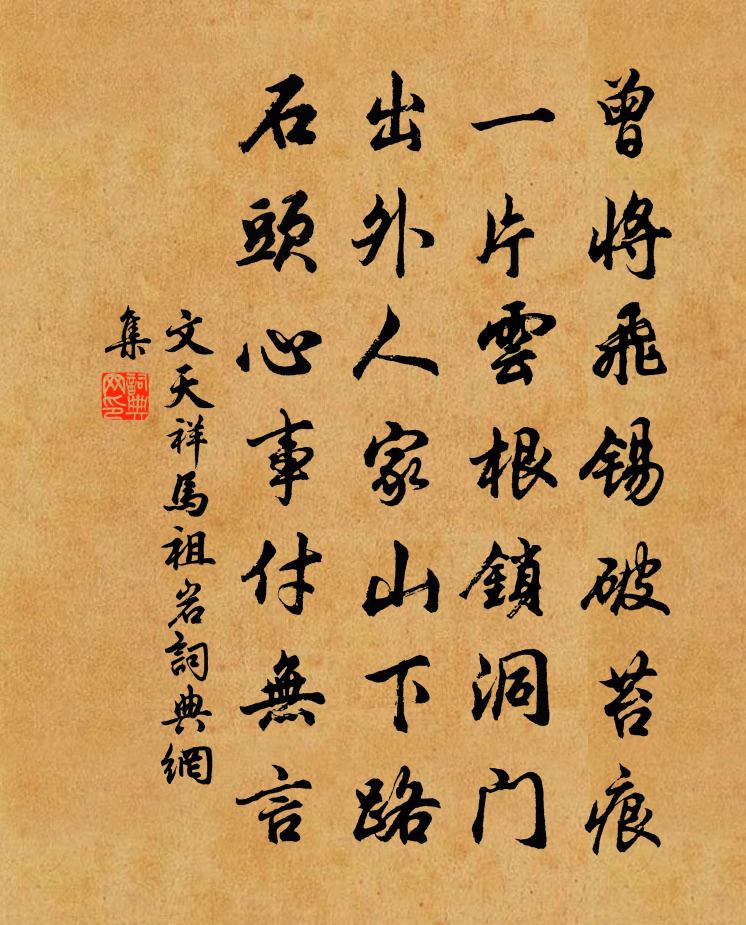 曾將飛錫破苔痕
一片雲根鎖洞门
出外人家山下路
石頭心事付無言
文天祥馬祖岩詞典網
集
詞典
网印